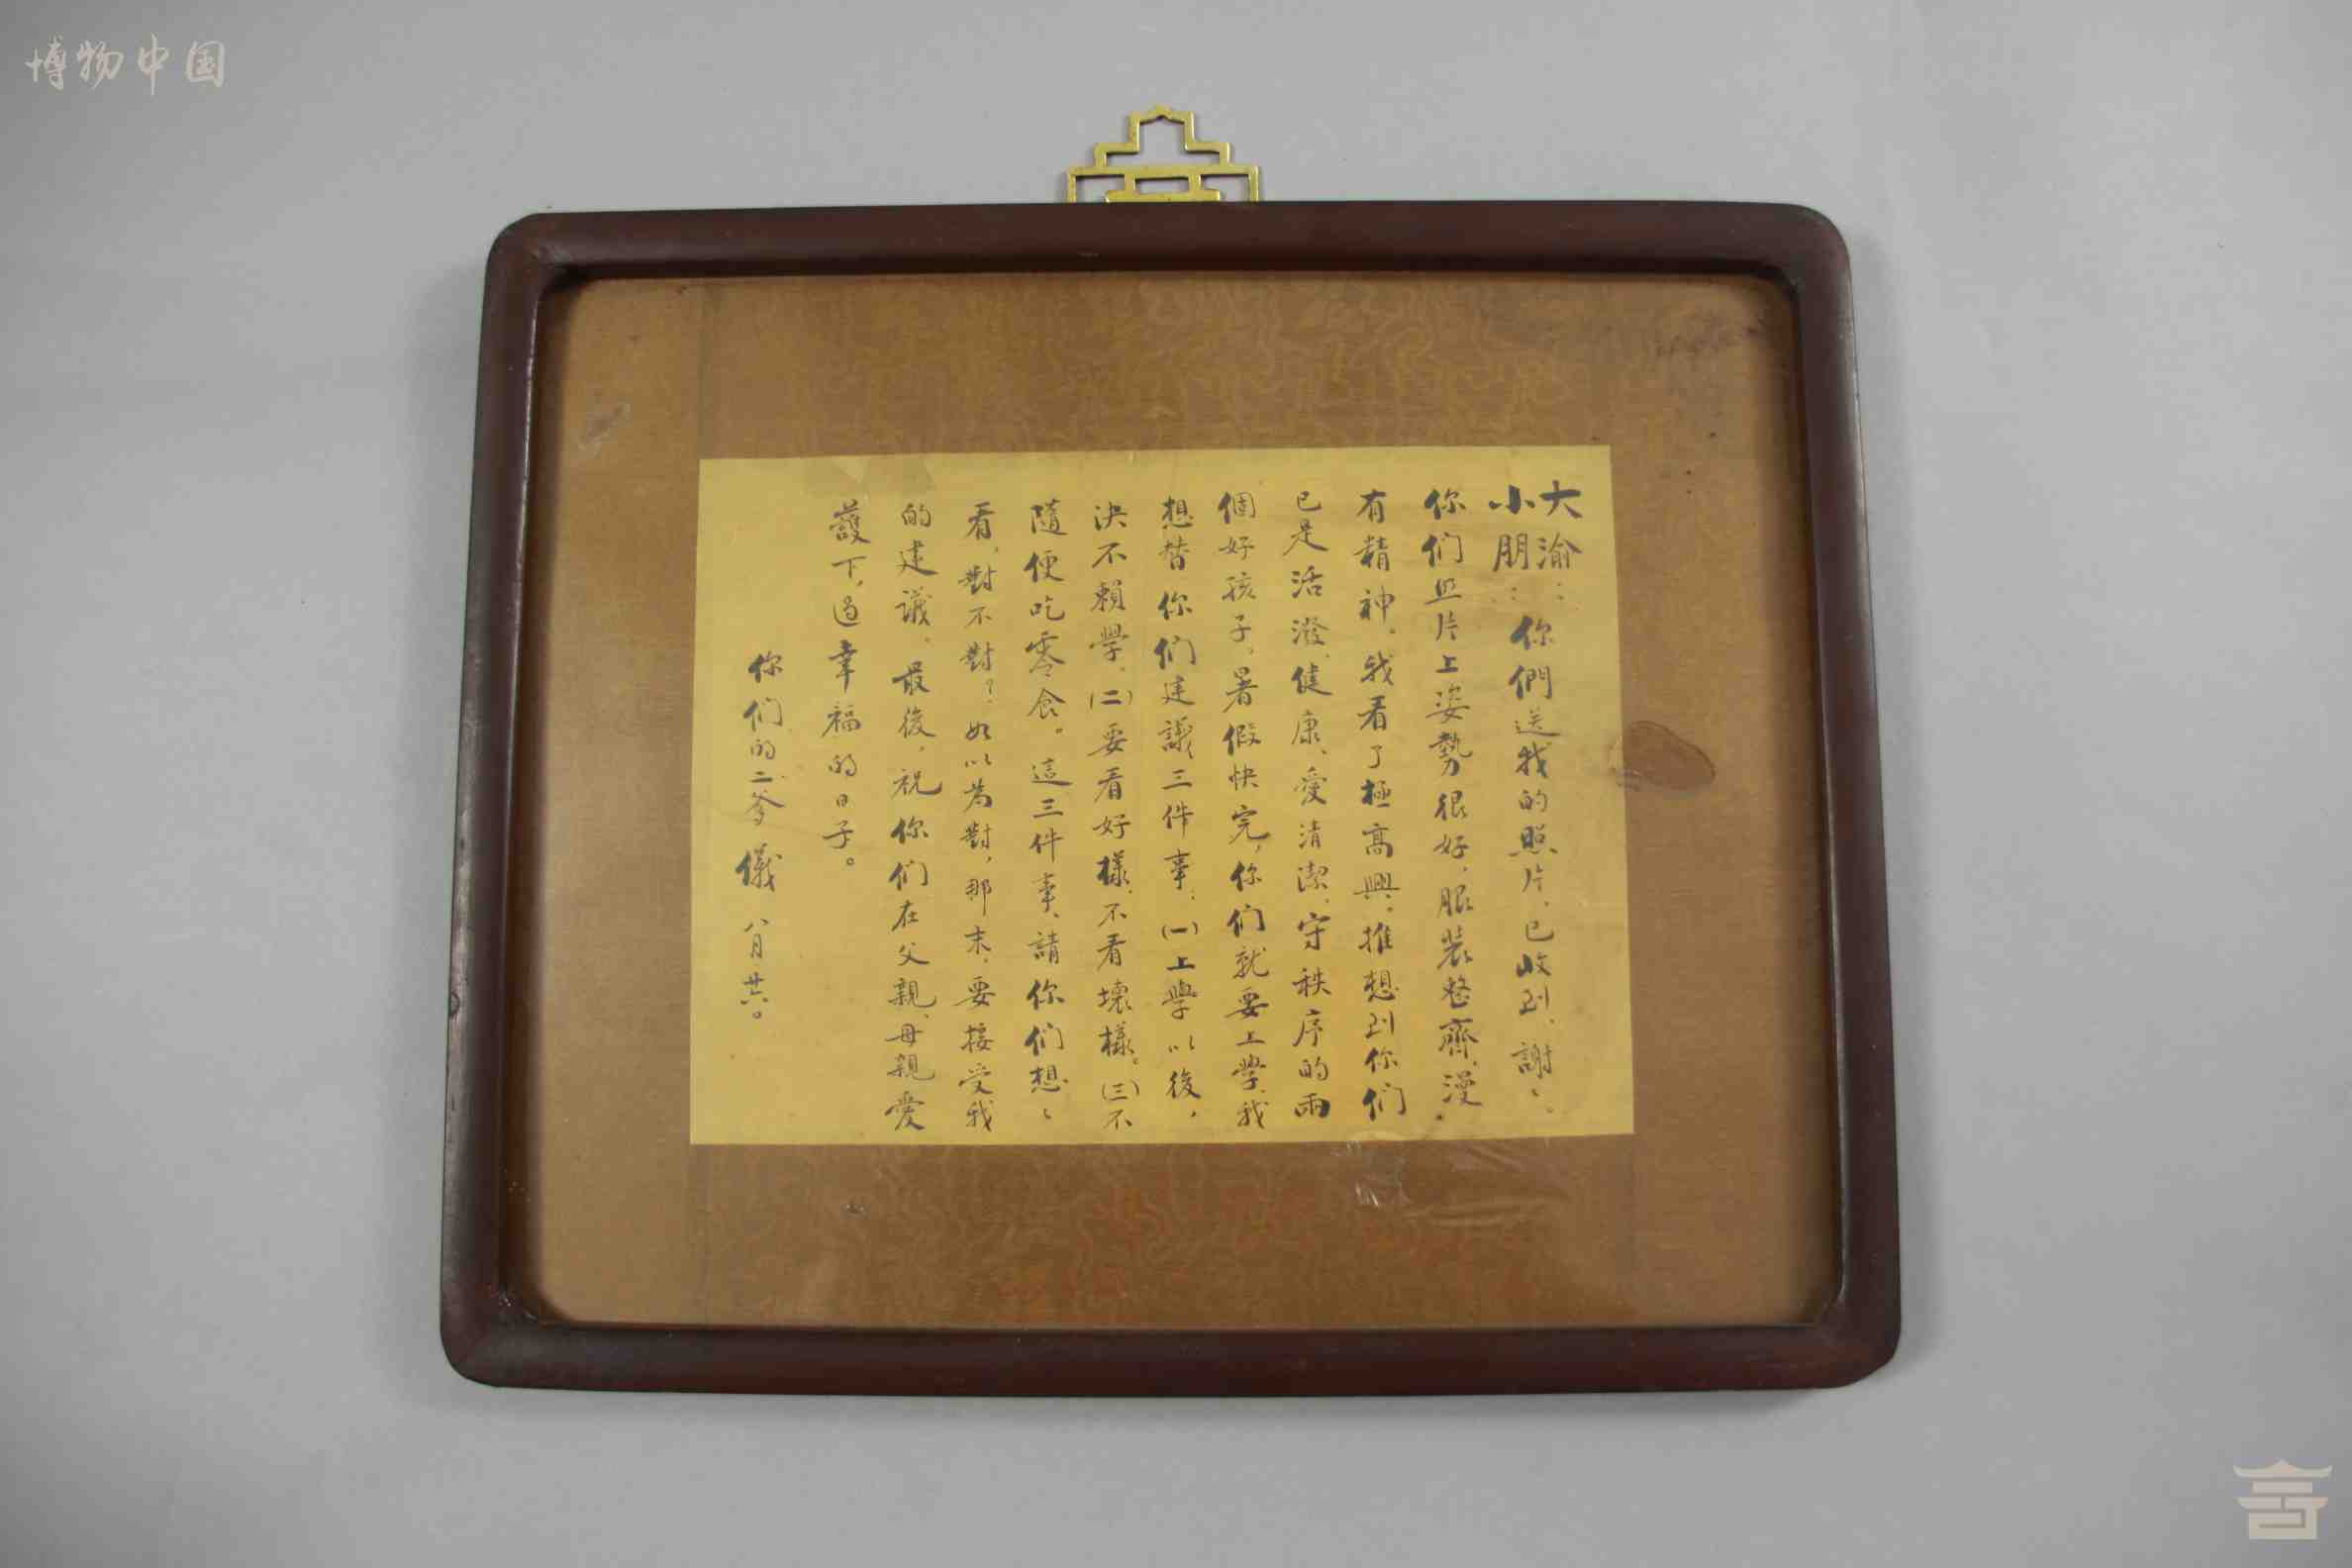 博物中国
大渝：
小朋：你們送我的照片，已收到，謝〻。
你们照片上姿勢很好，服裝整齊，漫
有精神。我看了極高興。推想到你们
已是活潑、健康、愛清潔、守秩序的兩
個好孩子。暑假快完，你们就要上學，我
想替你们建議三件事：（一）上學以後，
決不賴學。（二）要看好樣，不看壞樣。（三）不
隨便吃零食。這三件事，請你们想〻
看，對不對？如以為對，那末，要接受我
的建議。最後，祝你们在父親、母親愛
護下，過幸福的日子。
你们的二爹 儀 八月廿六。